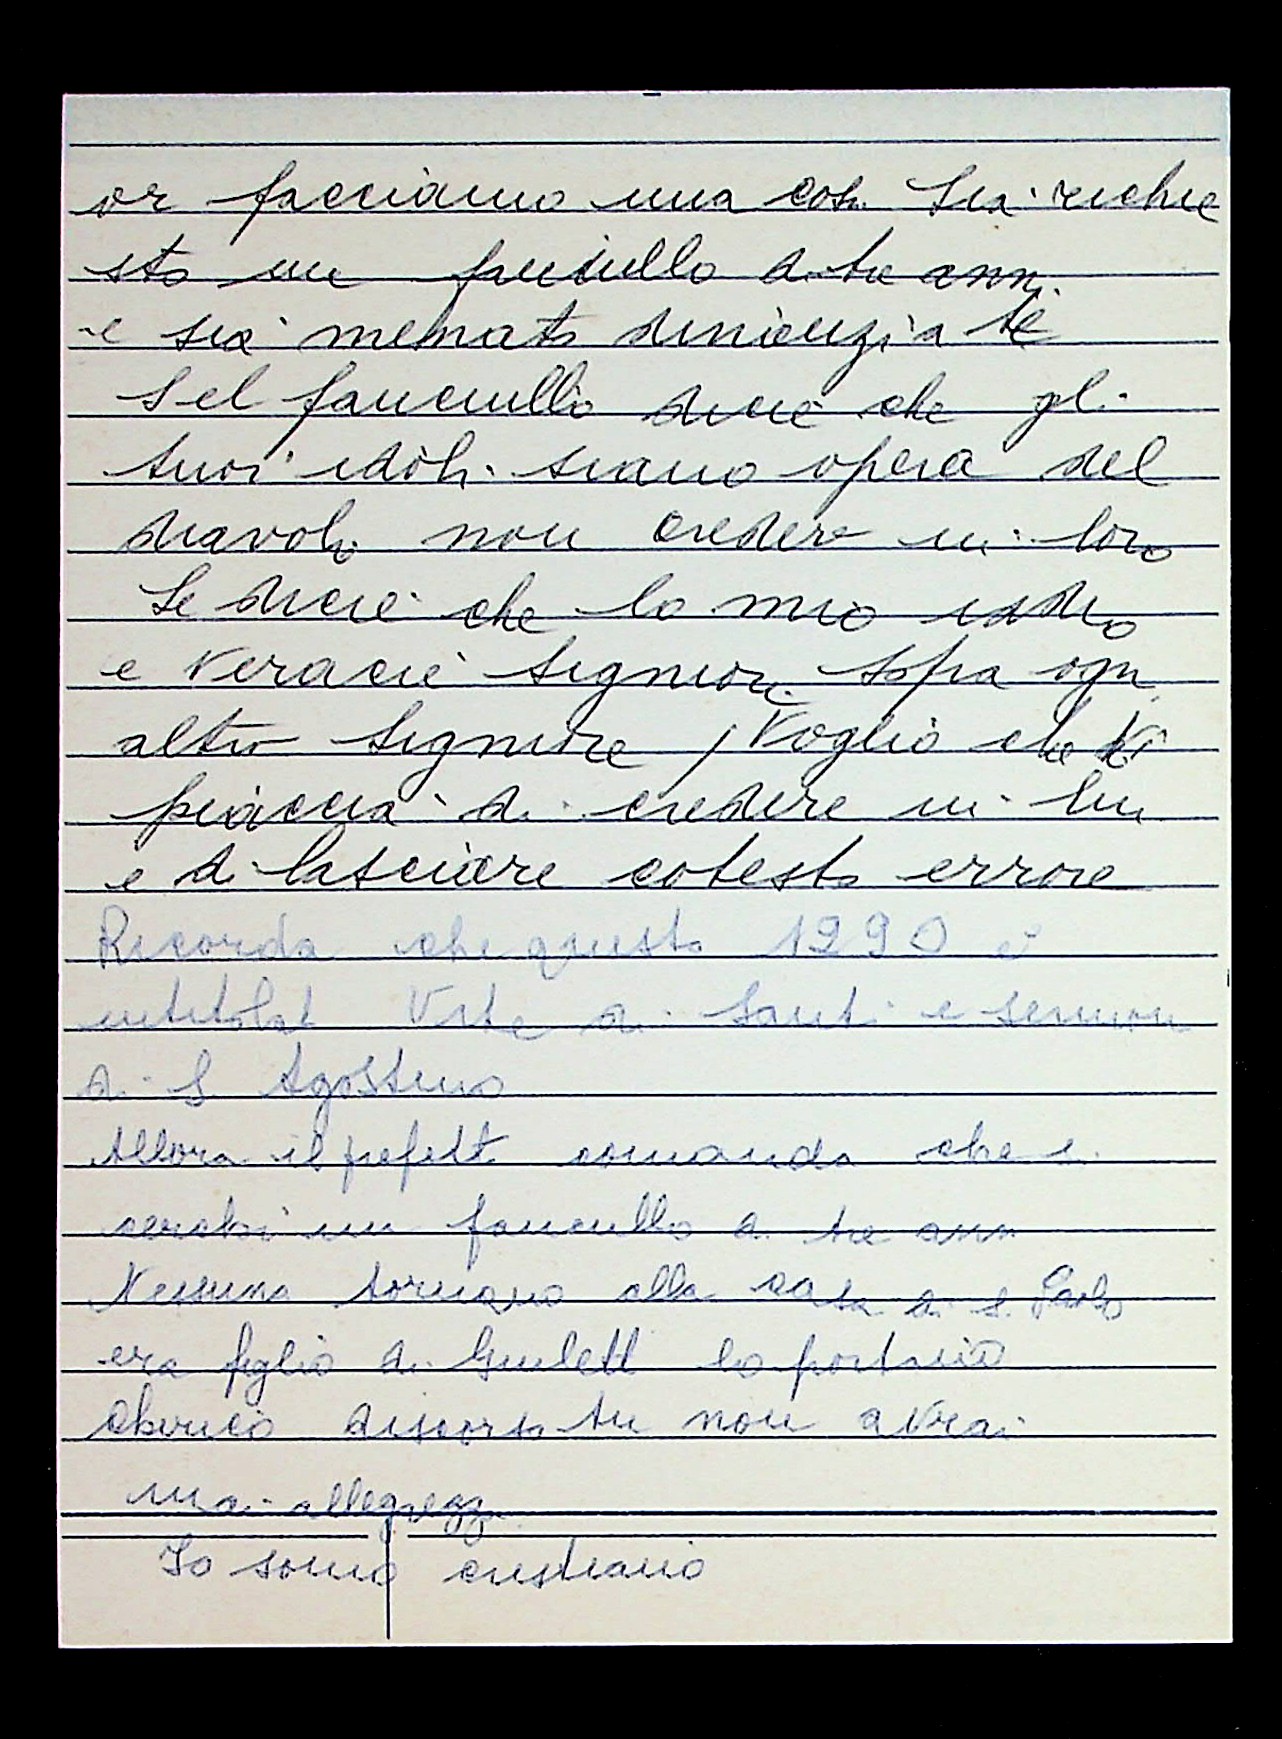 or facciamo una cosa sia richie
sto un fanciullo di tre anni
e sia menato dinienzia te
Sel fanciullo dicie che gli
tuoi idoli siano opera del
diavolo non credere in loro
Se dicie che lo mio iddio
e veracie signiore sopra ogni
altro signiore / Voglio che ti
piaccia di credere in lui
e di lasciare cotesto errore
Ricorda che questo 1290 è
intitolat Vite di Santi e sermoni
di S. Agostino
Allora il prefett comanda che si
cerchi un fanciullo di tre anni
tornano alla casa di s.
era figlio di Giulett lo portario
discorso tu non avrai
mai allegrezz
Io sono cristiano